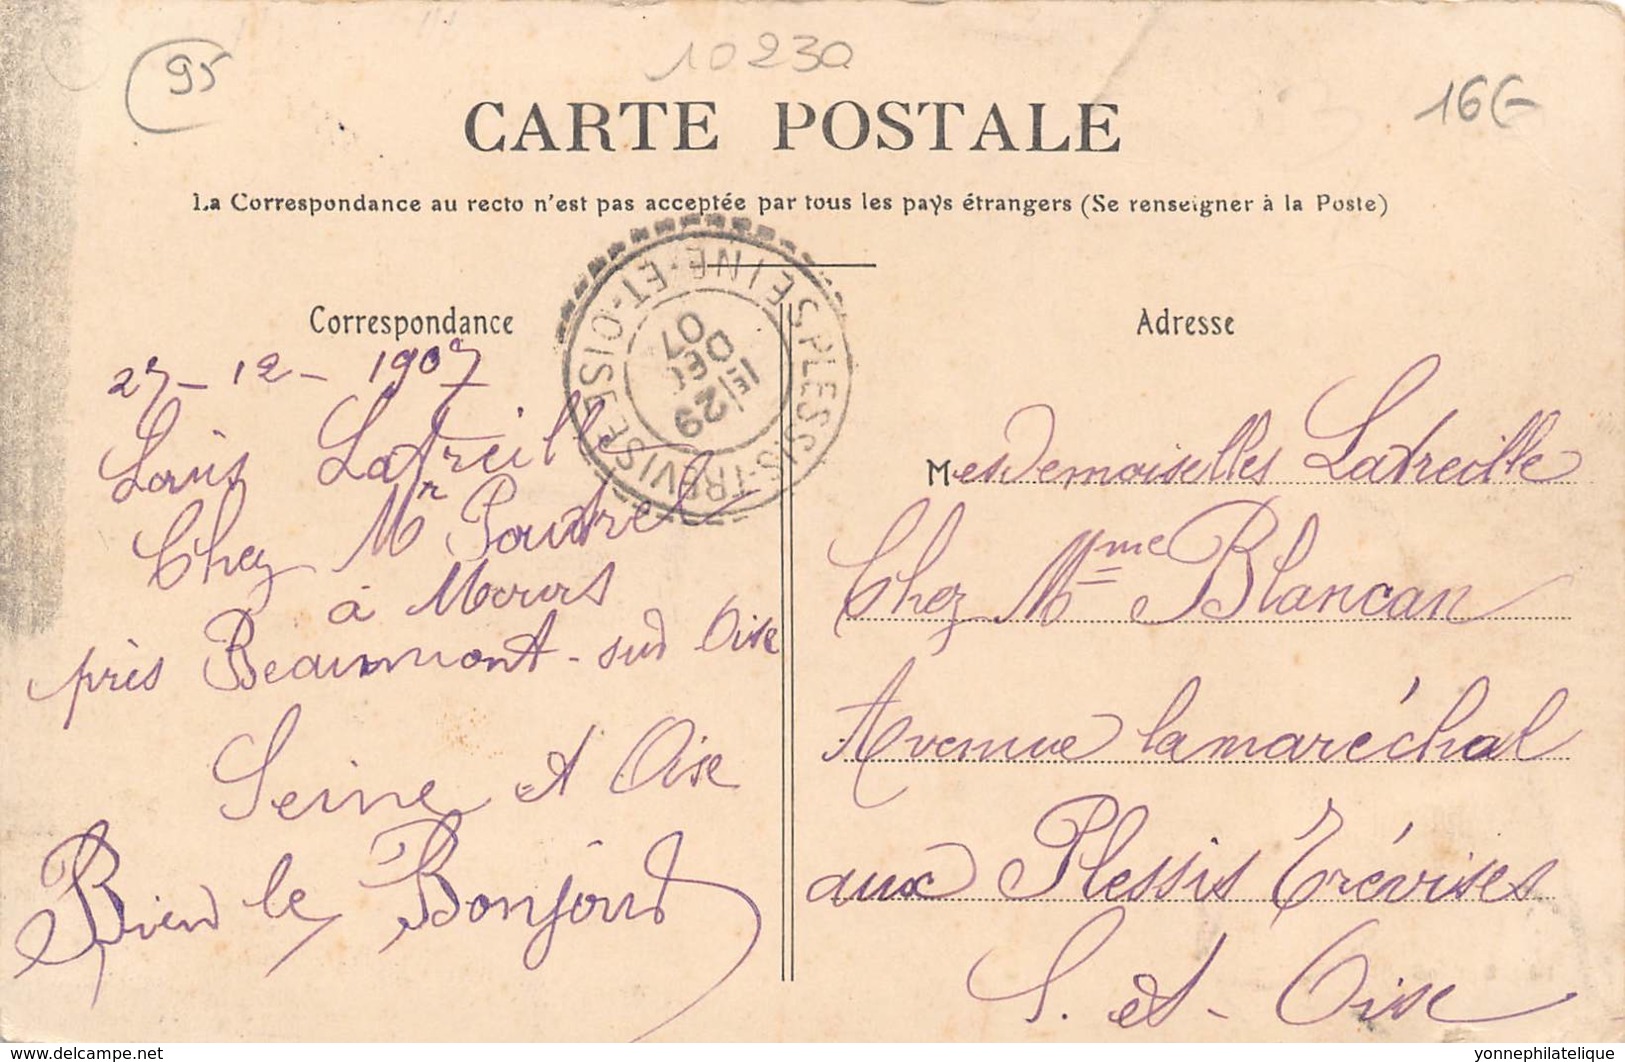 95
10230
16€
CARTE POSTALE
La Correspondance au recto n'est pas acceptée par tous les pays étrangers (Se renseigner à la Poste)
Correspondance
27-12-1907
Louis Latreille
Chez Mr Poutrel
à Mours
près Beaumont-sur Oise
Seine et Oise
Bien le Bonjour
PLESSIS-TRÉVISE
SEINE-ET-OISE
1E/29
DEC
07
Adresse
Mesdemoiselles Latreille
Chez Mme Blancan
Avenue lamaréchal
aux Plessis Trévises
S. et-Oise
delcampe.net
yonnephilatelique